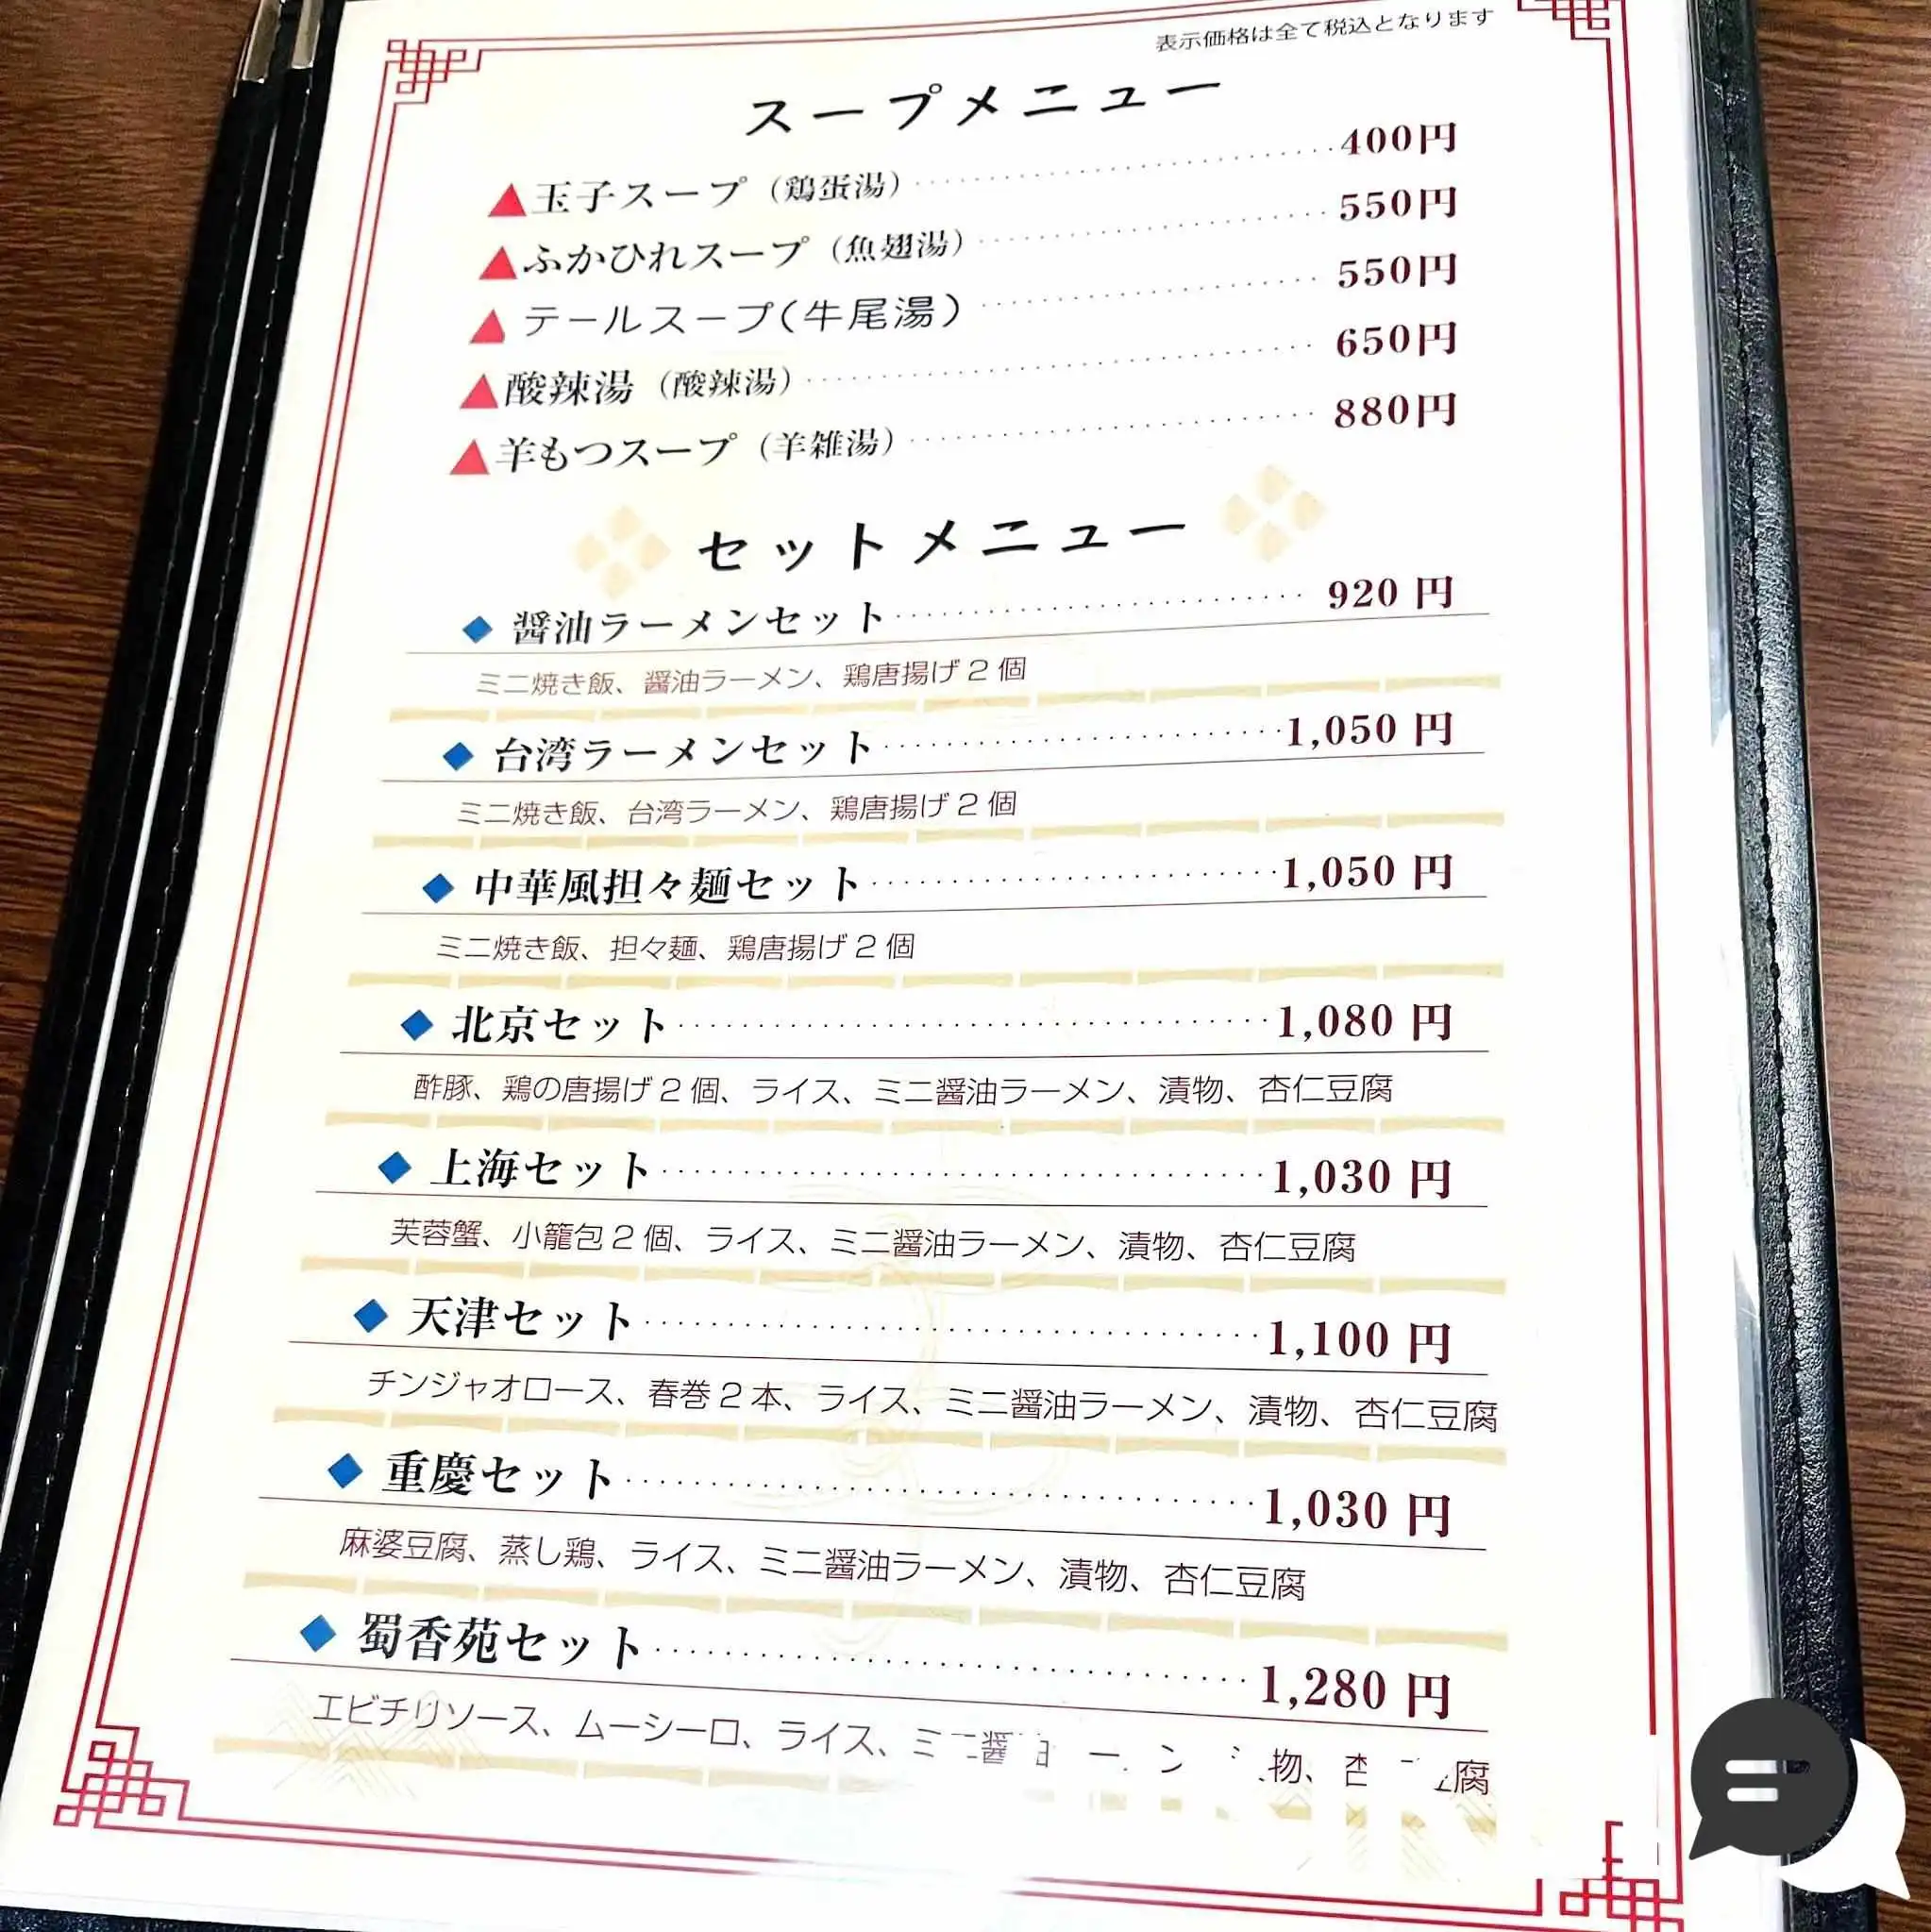 表示価格は全て税込となります
スープメニュー
▲玉子スープ（鶏蛋湯）400円
▲ふかひれスープ（魚翅湯）550円
▲テールスープ（牛尾湯）550円
▲酸辣湯（酸辣湯）650円
▲羊もつスープ（羊雑湯）880円
セットメニュー
◆醤油ラーメンセット 920円
ミニ焼き飯、醤油ラーメン、鶏唐揚げ2個
◆台湾ラーメンセット 1,050円
ミニ焼き飯、台湾ラーメン、鶏唐揚げ2個
◆中華風担々麺セット 1,050円
ミニ焼き飯、担々麺、鶏唐揚げ2個
◆北京セット 1,080円
酢豚、鶏の唐揚げ2個、ライス、ミニ醤油ラーメン、漬物、杏仁豆腐
◆上海セット 1,030円
芙蓉蟹、小籠包2個、ライス、ミニ醤油ラーメン、漬物、杏仁豆腐
◆天津セット 1,100円
チンジャオロース、春巻2本、ライス、ミニ醤油ラーメン、漬物、杏仁豆腐
◆重慶セット 1,030円
麻婆豆腐、蒸し鶏、ライス、ミニ醤油ラーメン、漬物、杏仁豆腐
◆蜀香苑セット 1,280円
エビチリソース、ムーシーロ、ライス、ミニ醤